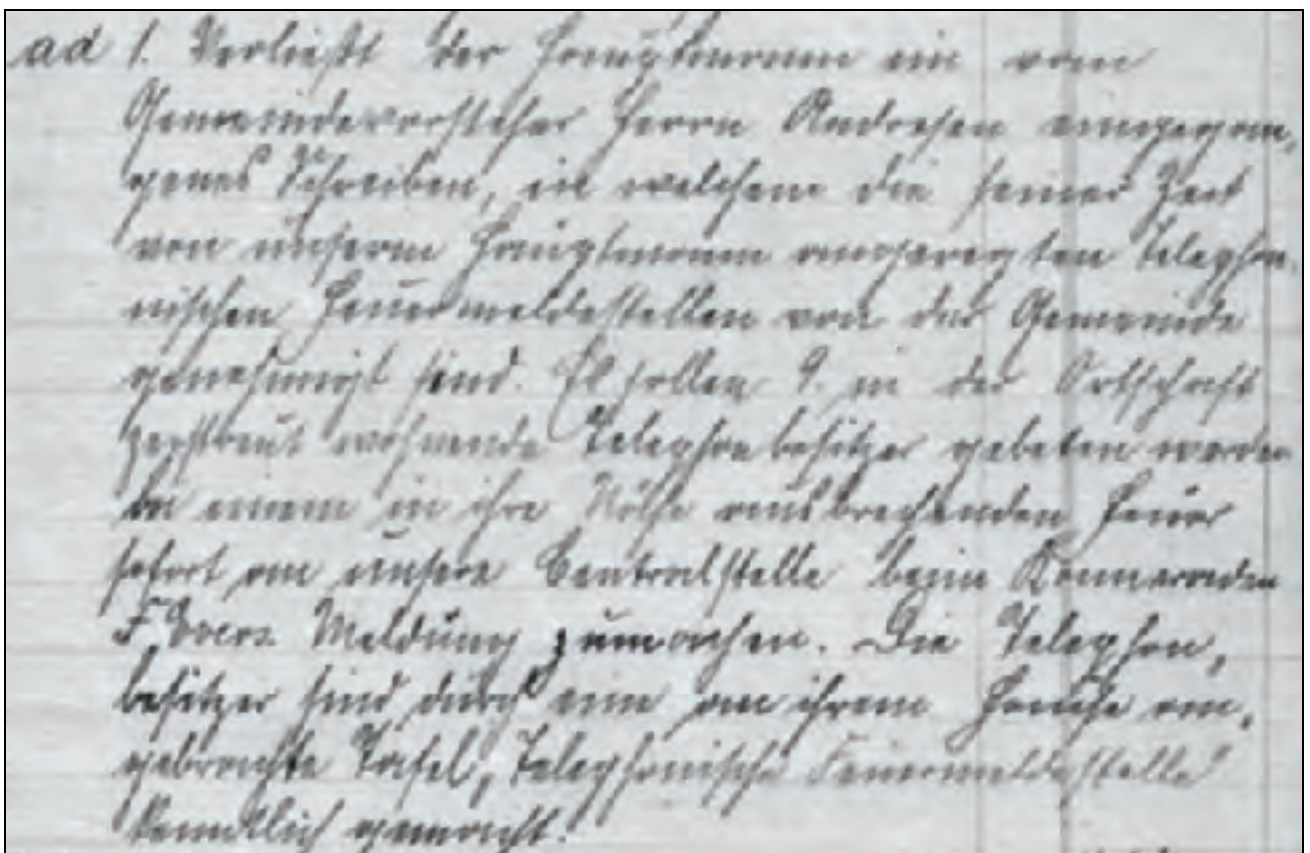 ad 1. Verließt der Hauptmann ein vom
Gemeindevorsteher Herrn Andresen eingegan,
genes Schreiben, in welchem die seiner Zeit
von unserm Hauptmann angeregten telepho,
nischen Feuermeldestellen von der Gemeinde
genehmigt sind. Es sollen 9. in der Ortschaft
zerstreut wohnende Telephonbesitzer gebeten werden
bei einem in ihre Nähe ausbrechenden Feuer
sofort an unsere Centralstelle beim Kammeraden
F Evers Meldung zumachen. Die Telephon,
besitzer sind durch eine an ihrem Hause an,
gebrachte Tafel, „Telephonische Feuermeldestelle"
kenntlich gemacht.